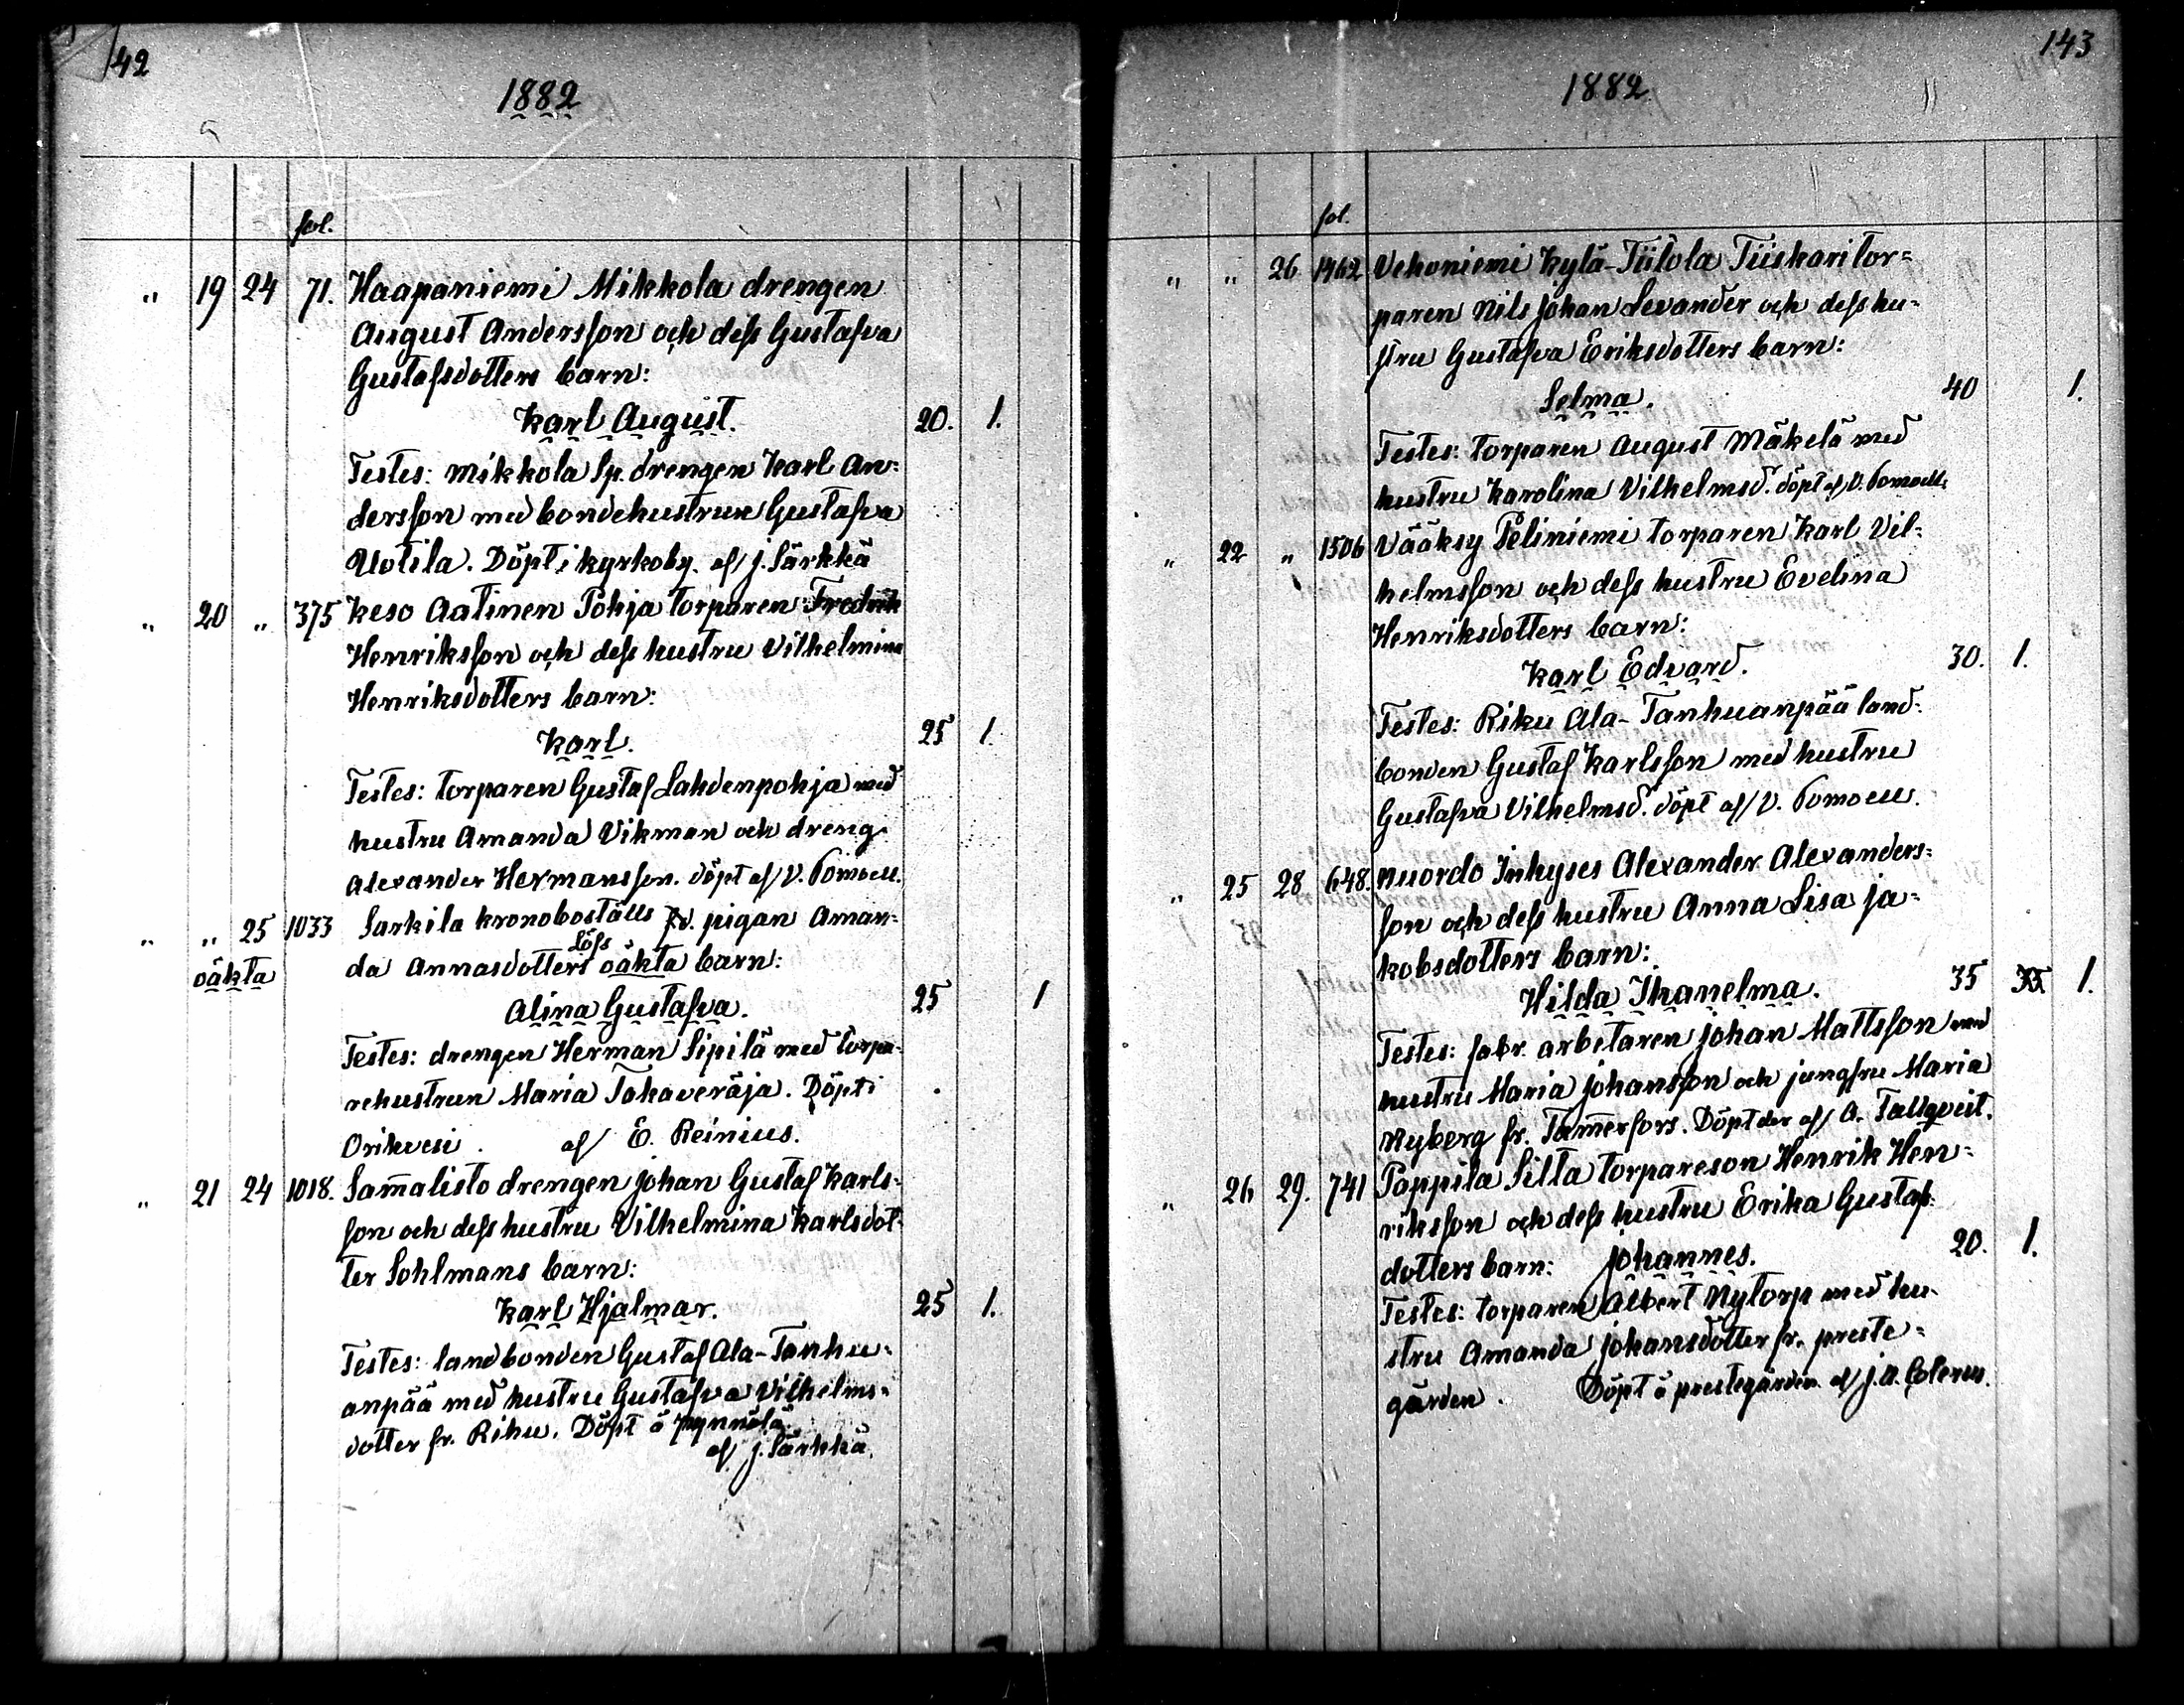 142
1882
fol.
" 19 24 71. Haapaniemi Mikkola drengen
August Andersson och dess Gustafva
Gustafsdotters barn:
Karl August. 20. 1.
Testes: Mikkola Sp. drengen Karl An-
dersson med bondehustrun Gustafva
Uotila. Döpt i kyrkoby. af J. Särkkä
" 20 " 375 Keso Aatinen Pohja torparen Fredrik
Henriksson och dess hustru Vilhelmina
Henriksdotters barn:
Karl. 25 1.
Testes: torparen Gustaf Lahdenpohja med
hustru Amanda Vikman och dreng
Alexander Hermansson. döpt af V. Pomoell.
" " 25 1033 Sarkila kronoboställs pigan Aman-
löss
oäkta da Annasdotters oäkta barn:
Alina Gustafva. 25 1
Testes: drengen Herman Sipilä med torpa-
rehustrun Maria Takaveräja. Döpt i
Orihvesi. af E. Reinius.
" 21 24 1018. Sam̄alisto drengen Johan Gustaf Karls-
son och dess hustru Vilhelmina Karlsdot-
ter Sohlmans barn:
Karl Hjalmar. 25 1.
Testes: landbonden Gustaf Ala-Tanhu-
anpää med hustru Gustafva Vilhelms-
dotter fr. Riku. Döpt å Pynnölä
af J. Särkkä.
143
1882
fol.
" " 26 1462 Vehoniemi Kylä-Tiitola Tiiskari tor-
paren Nils Johan Levander och dess hu-
stru Gustafva Eriksdotters barn:
Selma. 40 1.
Testes: torparen August Mäkelä med
hustru Karolina Vilhelmsd. döpt af V. Pomoell.
" 22 " 1506 Vääksy Peliniemi torparen Karl Vil-
helmsson och dess hustru Evelina
Henriksdotters barn:
Karl Edvard. 30. 1.
Testes: Riku Ala-Tanhuanpää land-
bonden Gustaf Karlsson med hustru
Gustafva Vilhelmsd. döpt af V. Pomoell.
" 25 28 648. Nuordo Inhyses Alexander Alexanders-
son och dess hustru Anna Lisa Ja-
kobsdotters barn:
Hilda Ihanelma. 35 1.
Testes: fabr. arbetaren Johan Mattsson med
hustru Maria Johansson och jungfru Maria
Nyberg fr. Tam̄erfors. Döpt der af A. Tallqvist.
" 26 29. 741 Pappila Silta torpareson Henrik Hen-
riksson och dess hustru Erika Gustafs-
dotters barn: Johannes. 20. 1.
Testes: torparen Albert Nytorp med hu-
stru Amanda Johansdotter fr. preste-
gården. Döpt å prestegården af J. A. Colerus.